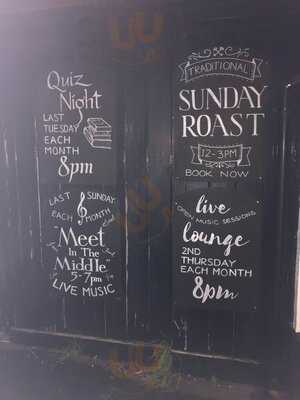 Quiz
Night
LAST
TUESDAY
EACH
MONTH
8pm
TRADITIONAL
SUNDAY
ROAST
12-3PM
BOOK NOW
LAST SUNDAY
EACH MONTH
"Meet
In The
Middle"
5-7pm
LIVE MUSIC
live
OPEN MUSIC SESSIONS
lounge
2ND
THURSDAY
EACH MONTH
8pm